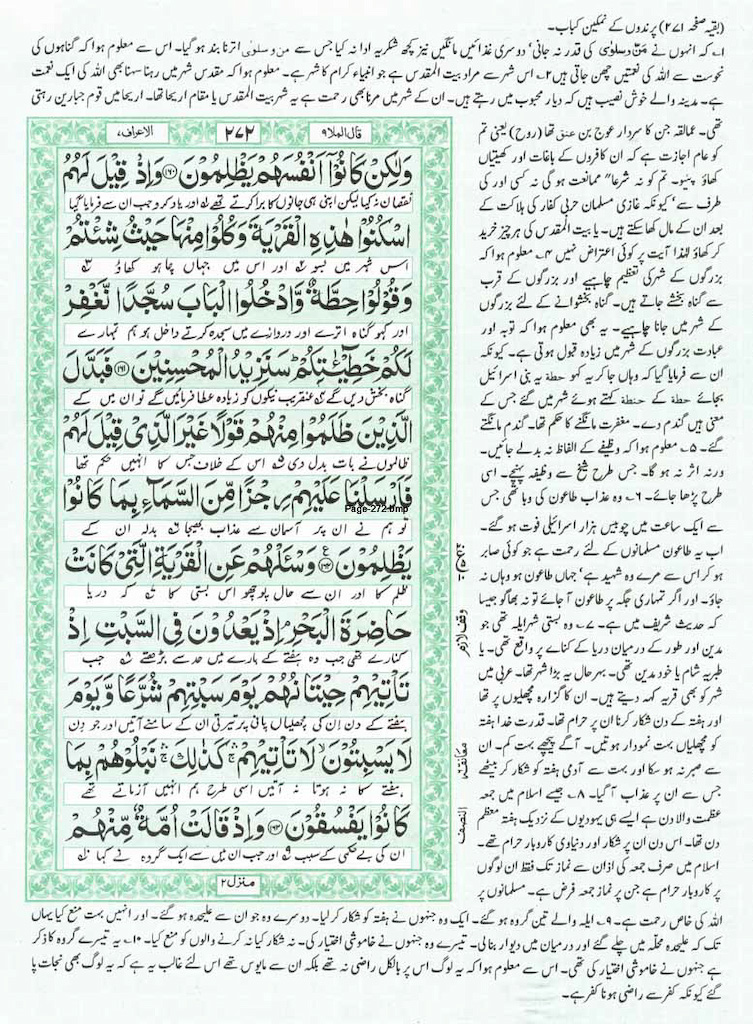 (بقیہ صفحہ ۲۷۱) پرندوں کے نمکین کباب۔
۱۔ کہ انہوں نے من و سلویٰ کی قدر نہ جانی' دوسری غذائیں مانگیں نیز کچھ شکریہ ادا نہ کیا جس سے من و سلویٰ اترنا بند ہو گیا۔ اس سے معلوم ہوا کہ گناہوں کی
نحوست سے اللہ کی نعمتیں چھن جاتی ہیں ۲۔ اس شہر سے مراد بیت المقدس ہے جو انبیاء کرام کا شہر ہے۔ معلوم ہوا کہ مقدس شہر میں رہنا سہنا بھی اللہ کی ایک نعمت
ہے۔ مدینہ والے خوش نصیب ہیں کہ دیار محبوب میں رہتے ہیں۔ ان کے شہر میں مرنا بھی رحمت ہے یہ شہر بیت المقدس یا مقام اریحا تھا۔ اریحا میں قوم جبارین رہتی
قال الملا۹
۲۷۲
الاعراف۷
وَلٰكِنْ كَانُوْۤا اَنْفُسَهُمْ يَظْلِمُوْنَ ﴿۱۶۰﴾ وَاِذْ قِيْلَ لَهُمُ
نقصان نہ کیا لیکن اپنی ہی جانوں کا برا کرتے تھے اور یاد کرو جب ان سے فرمایا گیا
اسْكُنُوْا هٰذِهِ الْقَرْيَةَ وَكُلُوْا مِنْهَا حَيْثُ شِئْتُمْ
اس شہر میں بسو اور اس میں جہاں چاہو کھاؤ
وَقُوْلُوْا حِطَّةٌ وَّادْخُلُوا الْبَابَ سُجَّدًا نَّغْفِرْ
اور کہو گناہ اترے اور دروازے میں سجدہ کرتے داخل ہو ہم تمہارے
لَكُمْ خَطِيْٓـٰٔتِكُمْ سَنَزِيْدُ الْمُحْسِنِيْنَ ﴿۱۶۱﴾ فَبَدَّلَ
گناہ بخش دیں گے عنقریب نیکوں کو زیادہ عطا فرمائیں گے تو ان میں کے
الَّذِيْنَ ظَلَمُوْا مِنْهُمْ قَوْلًا غَيْرَ الَّذِيْ قِيْلَ لَهُمْ
ظالموں نے بات بدل دی اس کے خلاف جس کا انہیں حکم تھا
فَاَرْسَلْنَا عَلَيْهِمْ رِجْزًا مِّنَ السَّمَآءِ بِمَا كَانُوْا
Page-272.bmp
تو ہم نے ان پر آسمان سے عذاب بھیجا بدلہ ان کے
يَظْلِمُوْنَ ﴿۱۶۲﴾ وَسْـَٔلْهُمْ عَنِ الْقَرْيَةِ الَّتِيْ كَانَتْ
ظلم کا اور ان سے حال پوچھو اس بستی کا کہ دریا
حَاضِرَةَ الْبَحْرِ اِذْ يَعْدُوْنَ فِي السَّبْتِ اِذْ
کنارے تھی جب وہ ہفتے کے بارے میں حد سے بڑھتے جب
تَاْتِيْهِمْ حِيْتَانُهُمْ يَوْمَ سَبْتِهِمْ شُرَّعًا وَّيَوْمَ
ہفتے کے دن ان کی مچھلیاں پانی پر تیرتی ان کے سامنے آتیں اور جو دن
لَا يَسْبِتُوْنَ لَا تَاْتِيْهِمْ كَذٰلِكَ نَبْلُوْهُمْ بِمَا
ہفتے کا نہ ہوتا نہ آتیں اسی طرح ہم انہیں آزماتے تھے
كَانُوْا يَفْسُقُوْنَ ﴿۱۶۳﴾ وَاِذْ قَالَتْ اُمَّةٌ مِّنْهُمْ
ان کی بے حکمی کے سبب اور جب ان میں سے ایک گروہ نے کہا
منزل۲
وقف لازم
معانقۃ
النصف
تھی۔ عمالقہ جن کا سردار عوج بن عنق تھا (روح) یعنی تم
کو عام اجازت ہے کہ ان کافروں کے باغات اور کھیتیاں
کھاؤ پیو۔ تم کو نہ شرعا" ممانعت ہو گی نہ کسی اور کی
طرف سے' کیونکہ غازی مسلمان حربی کفار کی ہلاکت کے
بعد ان کے مال کھا سکتے ہیں۔ یا بیت المقدس کی ہر چیز خرید
کر کھاؤ لہٰذا آیت پر کوئی اعتراض نہیں ۴۔ معلوم ہوا کہ
بزرگوں کے شہر کی تعظیم چاہیے اور بزرگوں کے قرب
سے گناہ بخشے جاتے ہیں۔ گناہ بخشوانے کے لئے بزرگوں
کے شہر میں جانا چاہیے۔ یہ بھی معلوم ہوا کہ توبہ اور
عبادت بزرگوں کے شہر میں زیادہ قبول ہوتی ہے۔ کیونکہ
ان سے فرمایا گیا کہ وہاں جا کر یہ کہو حطة یہ بنی اسرائیل
بجائے حطة کے حنطة کہتے ہوئے شہر میں گئے جس کے
معنی ہیں گندم دے۔ مغفرت مانگنے کا حکم تھا۔ گندم مانگنے
گئے۔ ۵۔ معلوم ہوا کہ وظیفے کے الفاظ نہ بدلے جائیں۔
ورنہ اثر نہ ہو گا۔ جس طرح شیخ سے وظیفہ پہنچے۔ اسی
طرح پڑھا جائے۔ ۶۔ وہ عذاب طاعون کی وبا تھی جس
سے ایک ساعت میں چوبیس ہزار اسرائیلی فوت ہو گئے۔
اب یہ طاعون مسلمانوں کے لئے رحمت ہے جو کوئی صابر
ہو کر اس سے مرے وہ شہید ہے' جہاں طاعون ہو وہاں نہ
جاؤ۔ اور اگر تمہاری جگہ پر طاعون آ جائے تو نہ بھاگو جیسا
کہ حدیث شریف میں ہے۔ ۷۔ وہ بستی شہر ایلہ تھی جو
مدین اور طور کے درمیان دریا کے کنارے پر واقع تھی۔ یا
طبریہ شام یا خود مدین تھی۔ بہرحال یہ بڑا شہر تھا۔ عربی میں
شہر کو بھی قریہ کہہ دیتے ہیں۔ ان کا گزارہ مچھلیوں پر تھا
اور ہفتہ کے دن شکار کرنا ان پر حرام تھا۔ قدرت خدا ہفتہ
کو مچھلیاں بہت نمودار ہوتیں۔ آگے پیچھے بہت کم۔ ان
سے صبر نہ ہو سکا اور بہت سے آدمی ہفتہ کو شکار کر بیٹھے
جس سے ان پر عذاب آ گیا۔ ۸۔ جیسے اسلام میں جمعہ
عظمت والا دن ہے ایسے ہی یہودیوں کے نزدیک ہفتہ معظم
دن تھا۔ اس دن ان پر شکار اور دنیاوی کاروبار حرام تھے۔
اسلام میں صرف جمعہ کی اذان سے نماز تک فقط ان لوگوں
پر کاروبار حرام ہے جن پر نماز جمعہ فرض ہے۔ مسلمانوں پر
اللہ کی خاص رحمت ہے۔ ۹۔ ایلہ والے تین گروہ ہو گئے۔ ایک وہ جنہوں نے ہفتہ کو شکار کر لیا۔ دوسرے وہ جو ان سے علیحدہ ہو گئے۔ اور انہیں بہت منع کیا یہاں
تک کہ علیحدہ محلہ میں چلے گئے اور درمیان میں دیوار بنالی۔ تیسرے وہ جنہوں نے خاموشی اختیار کی۔ نہ شکار کیا نہ کرنے والوں کو منع کیا۔ ۱۰۔ یہ تیسرے گروہ کا ذکر
ہے جنہوں نے خاموشی اختیار کی تھی۔ اس سے معلوم ہوا کہ یہ لوگ اس پر بالکل راضی نہ تھے بلکہ ان سے مایوس تھے اس لئے غالب یہ ہے کہ یہ لوگ بھی نجات پا
گئے کیونکہ کفر سے راضی ہونا کفر ہے۔